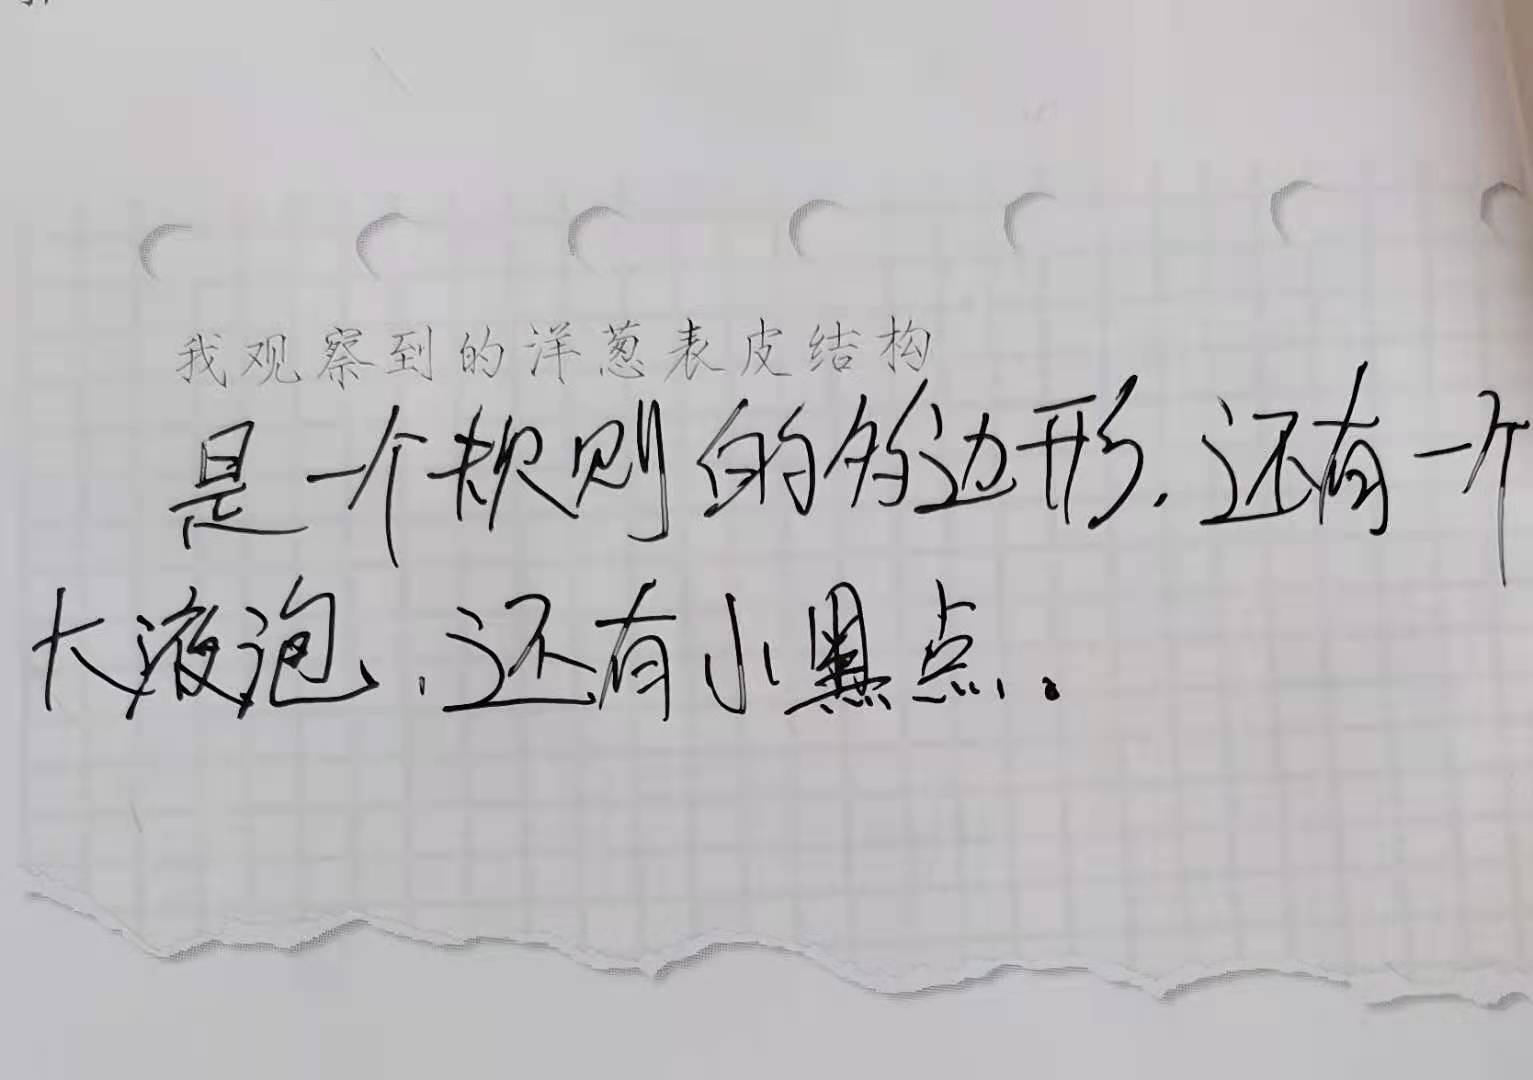 我观察到的洋葱表皮结构
是一个规则的多边形.还有一个
大液泡.还有小黑点.